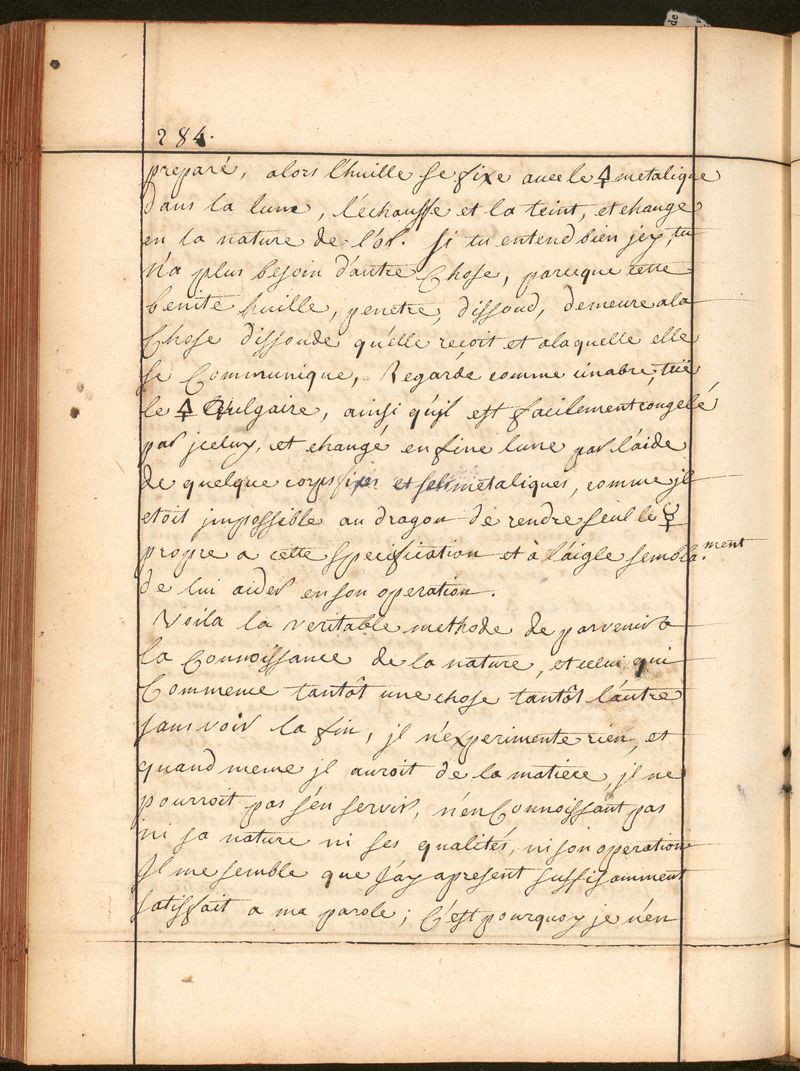 284.
preparé, alors l'huille se fixe avec le 🜍 metalique
dans la lune, l'echauffe et la teint, et change
en la nature de l'or. Si tu entend bien jcy, tu
n'a plus besoin d'autre Chose, parceque cette
benite huille, penetre, dissoud, demeure a la
Chose dissoude qu'elle reçoit et a laquelle elle
se Communique, Regarde comme cinabre, tüe
le 🜍 Vulgaire, ainsi qu'jl est facilement congelé
par jceluy, et changé en fine lune par l'aide
de quelque corps fixes et sels metaliques, comme jl
etoit jmpossible au dragon de rendre seul le ☿
propre a cette specification et à l'aigle sembla.ment
de lui aider en son operation.
Voila la veritable methode de parvenir a
la Connoissance de la nature, et celui qui
Commence tantôt une chose tantôt l'autre
sans voir la fin, jl n'experimente rien, et
quand meme jl auroit de la matiere, jl ne
pourroit pas s'en servir, n'en Connoissant pas
ni sa nature ni ses qualités, ni son operation
Jl me semble que j'ay apresent suffisamment
satisfait a ma parole; C'est pourquoy je n'en